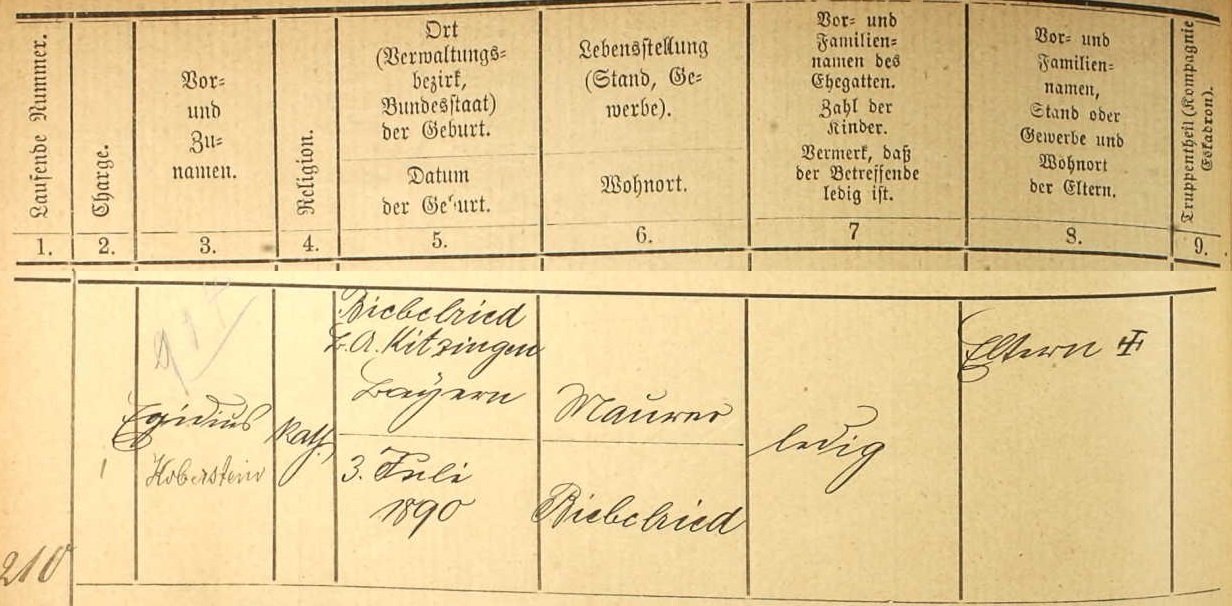 Laufende Nummer.
Charge.
Vor-
und
Zu-
namen.
Religion.
Ort
(Verwaltungs-
bezirk,
Bundesstaat)
der Geburt.
Datum
der Geburt.
Lebensstellung
(Stand, Ge-
werbe).
Wohnort.
Vor- und
Familien-
namen des
Ehegatten.
Zahl der
Kinder.
Vermerk, daß
der Betreffende
ledig ist.
Vor- und
Familien-
namen,
Stand oder
Gewerbe und
Wohnort
der Eltern.
Truppentheil (Kompagnie
Eskadron).
1. 2. 3. 4. 5. 6. 7 8. 9.
210
Egidius
Hoberstein
Kath.
Biebelried
B. A. Kitzingen
Bayern
3. Juli
1890
Maurer
Biebelried
ledig
Eltern ✝